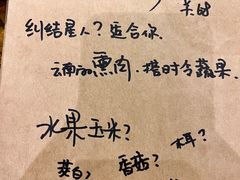 纠结星人？适合你.
云南的熏肉，搭时令蔬果.
水果玉米？
木耳？
茭白，香菇？